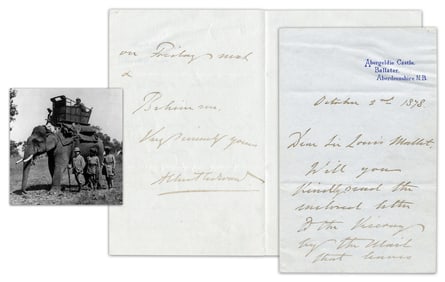 Abergeldie Castle,
Ballater,
Aberdeenshire, N.B.
October 2nd 1878.
Dear Sir Louis Mallet,
Will you
kindly send the
enclosed letter
to the Viceroy
by the Mail
that leaves
on Friday next
&
Believe me,
Very sincerely yours
Albert Edward